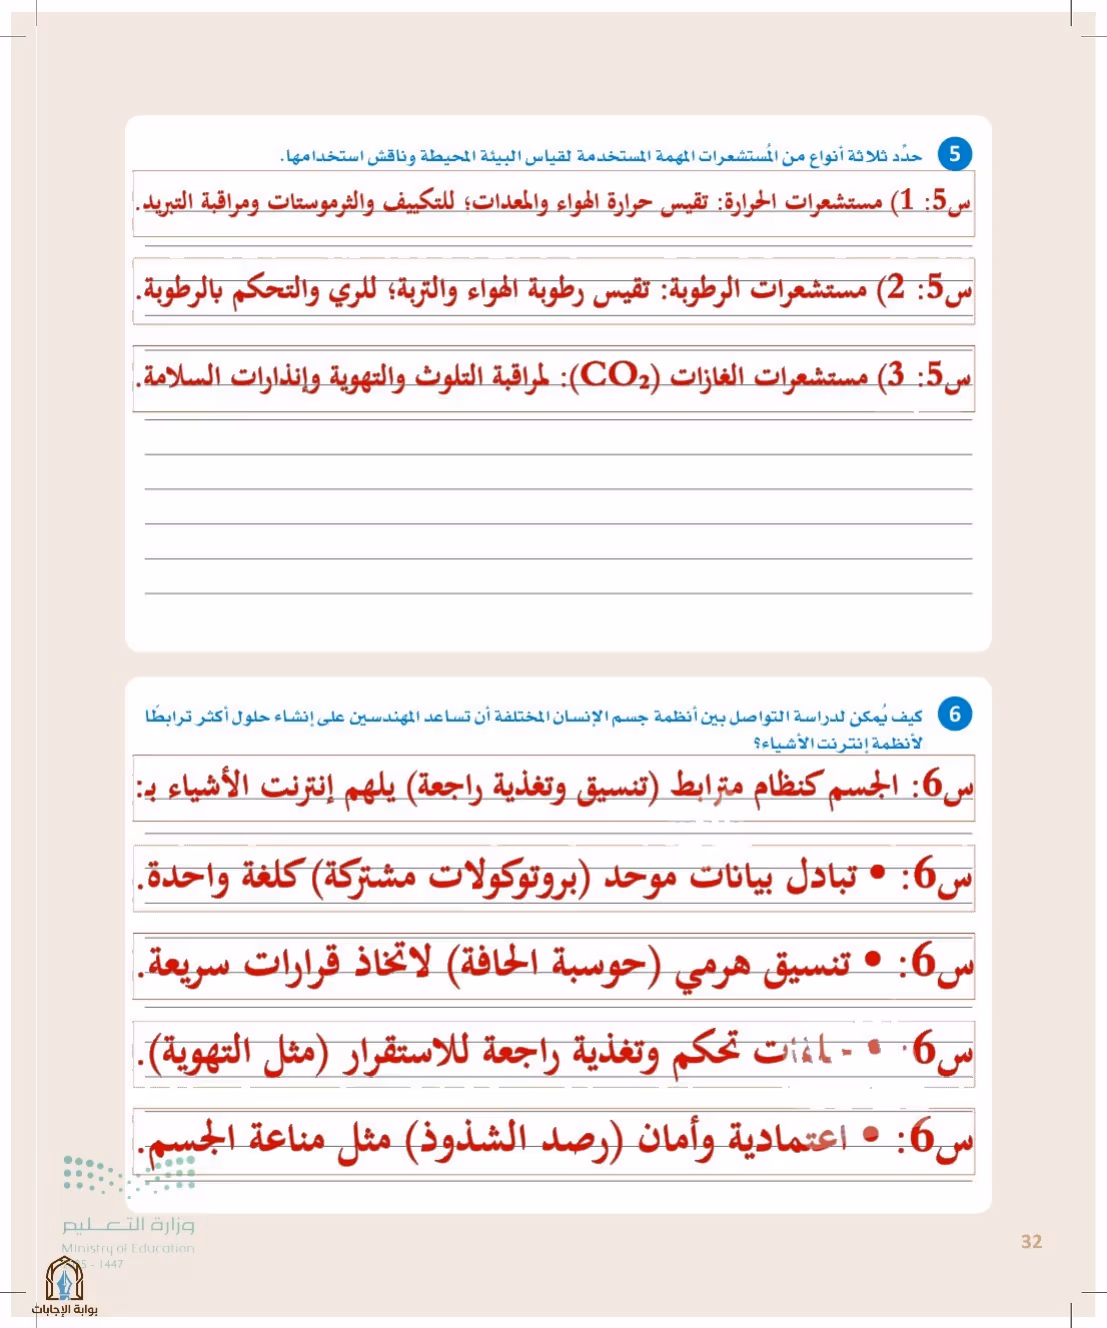 5 حدِّد ثلاثة أنواع من المُستشعرات المهمة المستخدمة لقياس البيئة المحيطة وناقش استخدامها.
س5: 1) مستشعرات الحرارة: تقيس حرارة الهواء والمعدات؛ للتكييف والثرموستات ومراقبة التبريد.
س5: 2) مستشعرات الرطوبة: تقيس رطوبة الهواء والتربة؛ للري والتحكم بالرطوبة.
س5: 3) مستشعرات الغازات (CO₂): لمراقبة التلوث والتهوية وإنذارات السلامة.
6 كيف يُمكن لدراسة التواصل بين أنظمة جسم الإنسان المختلفة أن تساعد المهندسين على إنشاء حلول أكثر ترابطًا
لأنظمة إنترنت الأشياء؟
س6: الجسم كنظام مترابط (تنسيق وتغذية راجعة) يلهم إنترنت الأشياء بـ:
س6: • تبادل بيانات موحد (بروتوكولات مشتركة) كلغة واحدة.
س6: • تنسيق هرمي (حوسبة الحافة) لاتخاذ قرارات سريعة.
س6: • تحكم وتغذية راجعة للاستقرار (مثل التهوية).
س6: • اعتمادية وأمان (رصد الشذوذ) مثل مناعة الجسم.
وزارة التعليم
Ministry of Education
- 1447
32
بوابة الإجابات